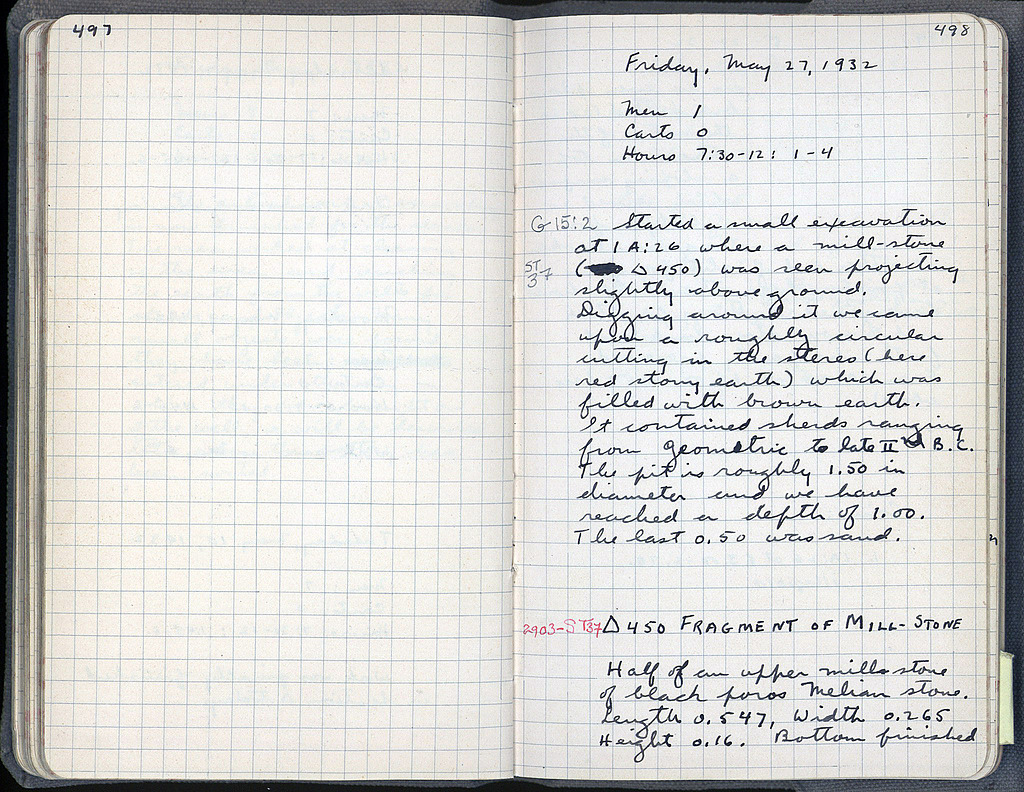 497
498
Friday, May 27, 1932
Men 1
Carts 0
Hours 7:30-12: 1-4
G 15:2 Started a small excavation
at 1 A:26 where a mill-stone
ST 37
( Δ 450) was seen projecting
slightly above ground.
Digging around it we came
upon a roughly circular
cutting in the stereo (here
red stony earth) which was
filled with brown earth.
It contained sherds ranging
from Geometric to late II nd B.C.
The pit is roughly 1.50 in
diameter and we have
reached a depth of 1.00.
The last 0.50 was sand.
2903-ST37 Δ 450 FRAGMENT OF MILL-STONE
Half of an upper millstone
of black poros Melian stone.
Length 0.547, Width 0.265
Height 0.16. Bottom finished